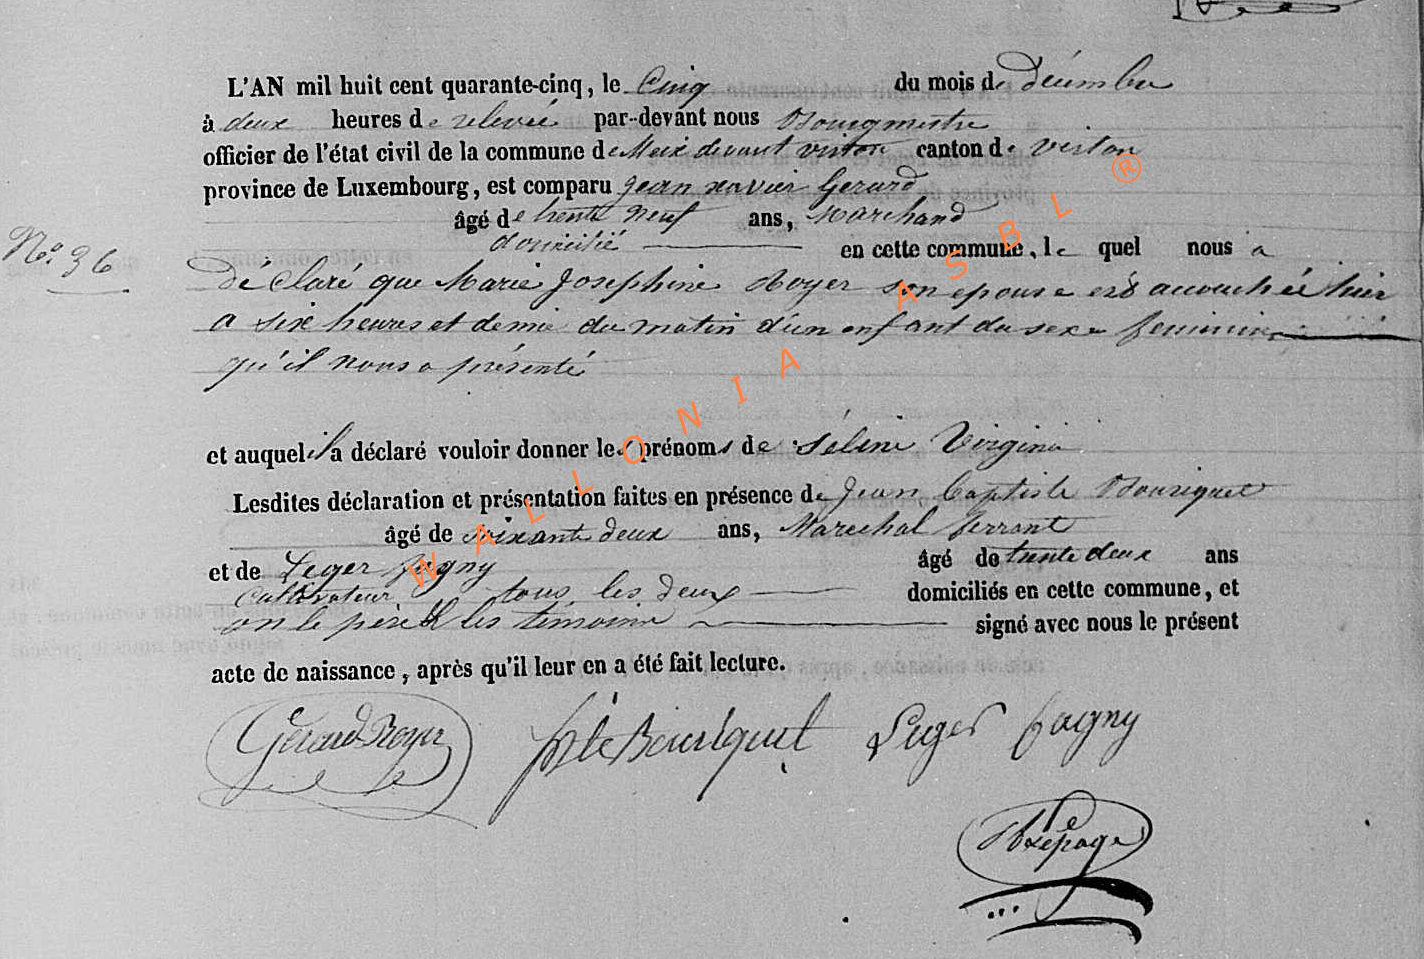 L'AN mil huit cent quarante-cinq, le Cinq du mois de décembre
à deux heures de relevée par-devant nous Bourgmestre
officier de l'état civil de la commune de Meix devant virton canton de virton
province de Luxembourg, est comparu Jean xavier Gerard
âgé de trente neuf ans, Marchand
domicilié en cette commune, le quel nous a
N.° 36
déclaré que Marie Josephine Royer son epouse est accouchée hier
a six heures et demie du matin d'un enfant du sexe feminin
qu'il nous a présenté
et auquel il a déclaré vouloir donner les prénoms de Séline Virginie
Lesdites déclaration et présentation faites en présence de Jean Baptiste Bouriquet
âgé de soixante deux ans, Marechal ferrant
et de Leger fagny âgé de trente deux ans
cultivateur tous les deux domiciliés en cette commune, et
on le père & les témoins signé avec nous le présent
acte de naissance, après qu'il leur en a été fait lecture.
Gérard Royer Bouriquet Leger fagny
WALLONIA ASBL ®